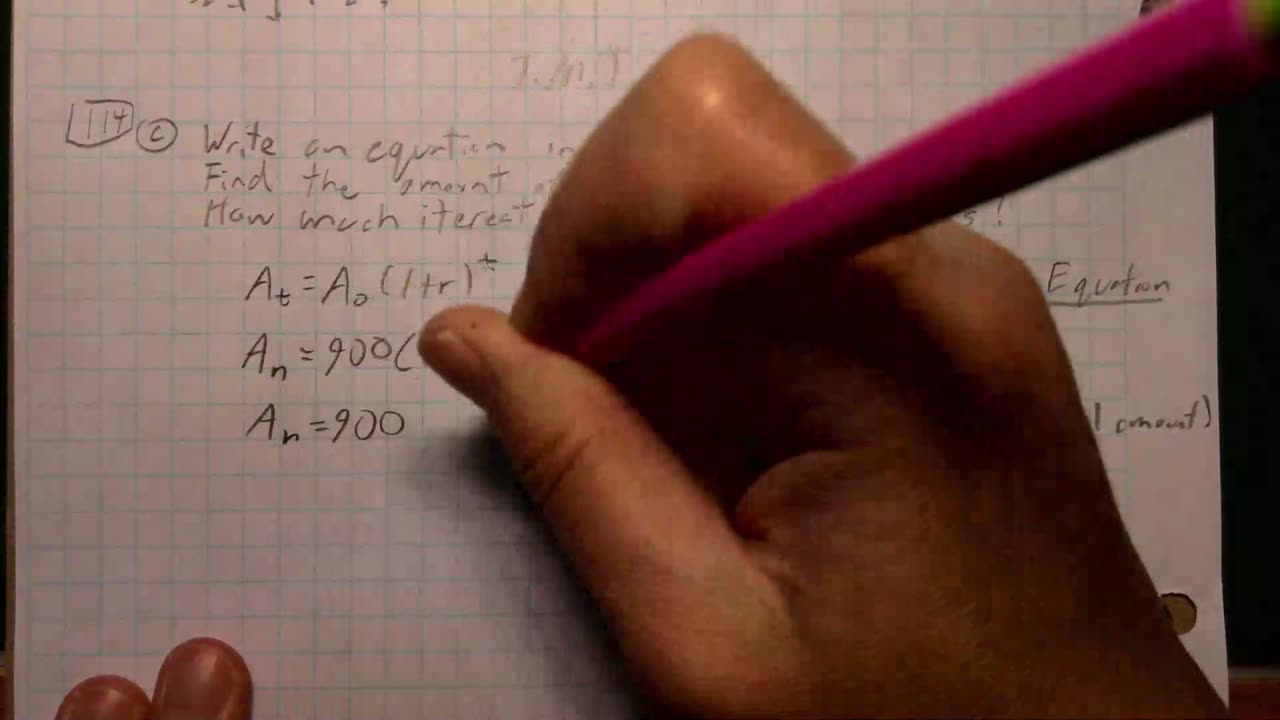 I.M.T
114 c Write an equation in
Find the amornt
How much iterest s!
Aₜ = A₀ (1+r)ᵗ Equation
Aₙ = 900(
Aₙ = 900 amount)